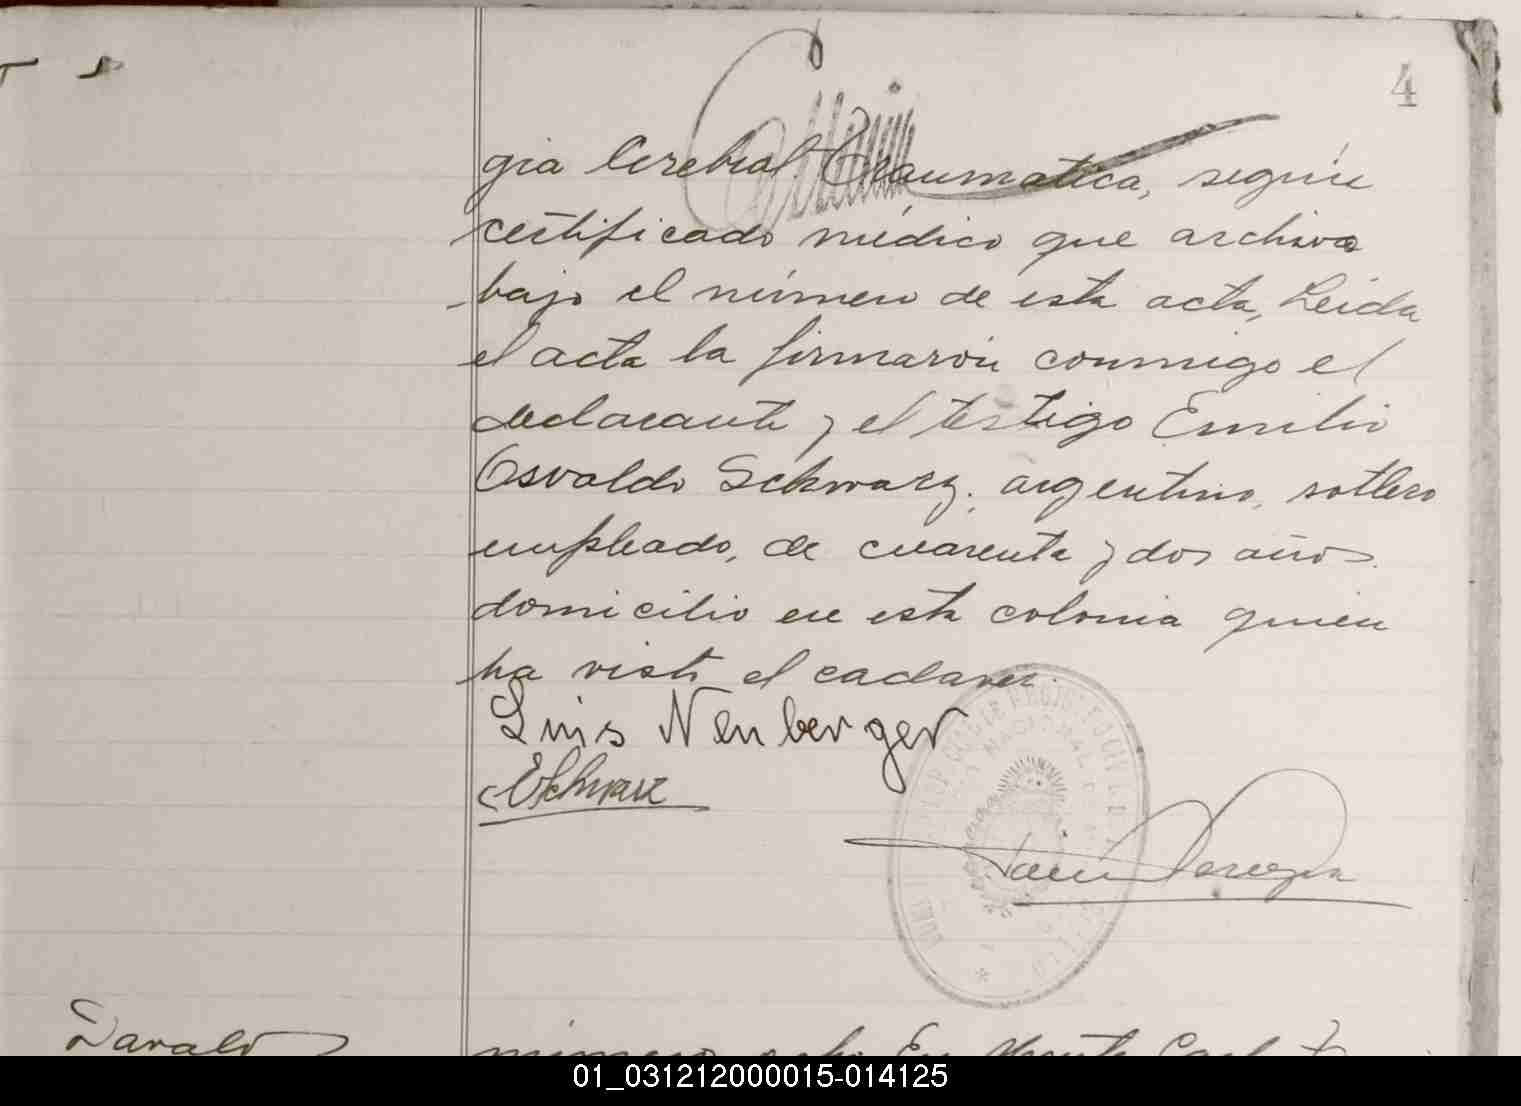 4
gia Cerebral Traumática, según
certificado médico que archivo
bajo el número de esta acta, Leida
el acta la firmaron conmigo el
declarante y el testigo Emilio
Osvaldo Schwarz, argentino, soltero
empleado, de cuarenta y dos años
domicilio en esta colonia quien
ha visto el cadaver.
Luis Neuberger
ESchwarz
número ocho En
01_031212000015-014125